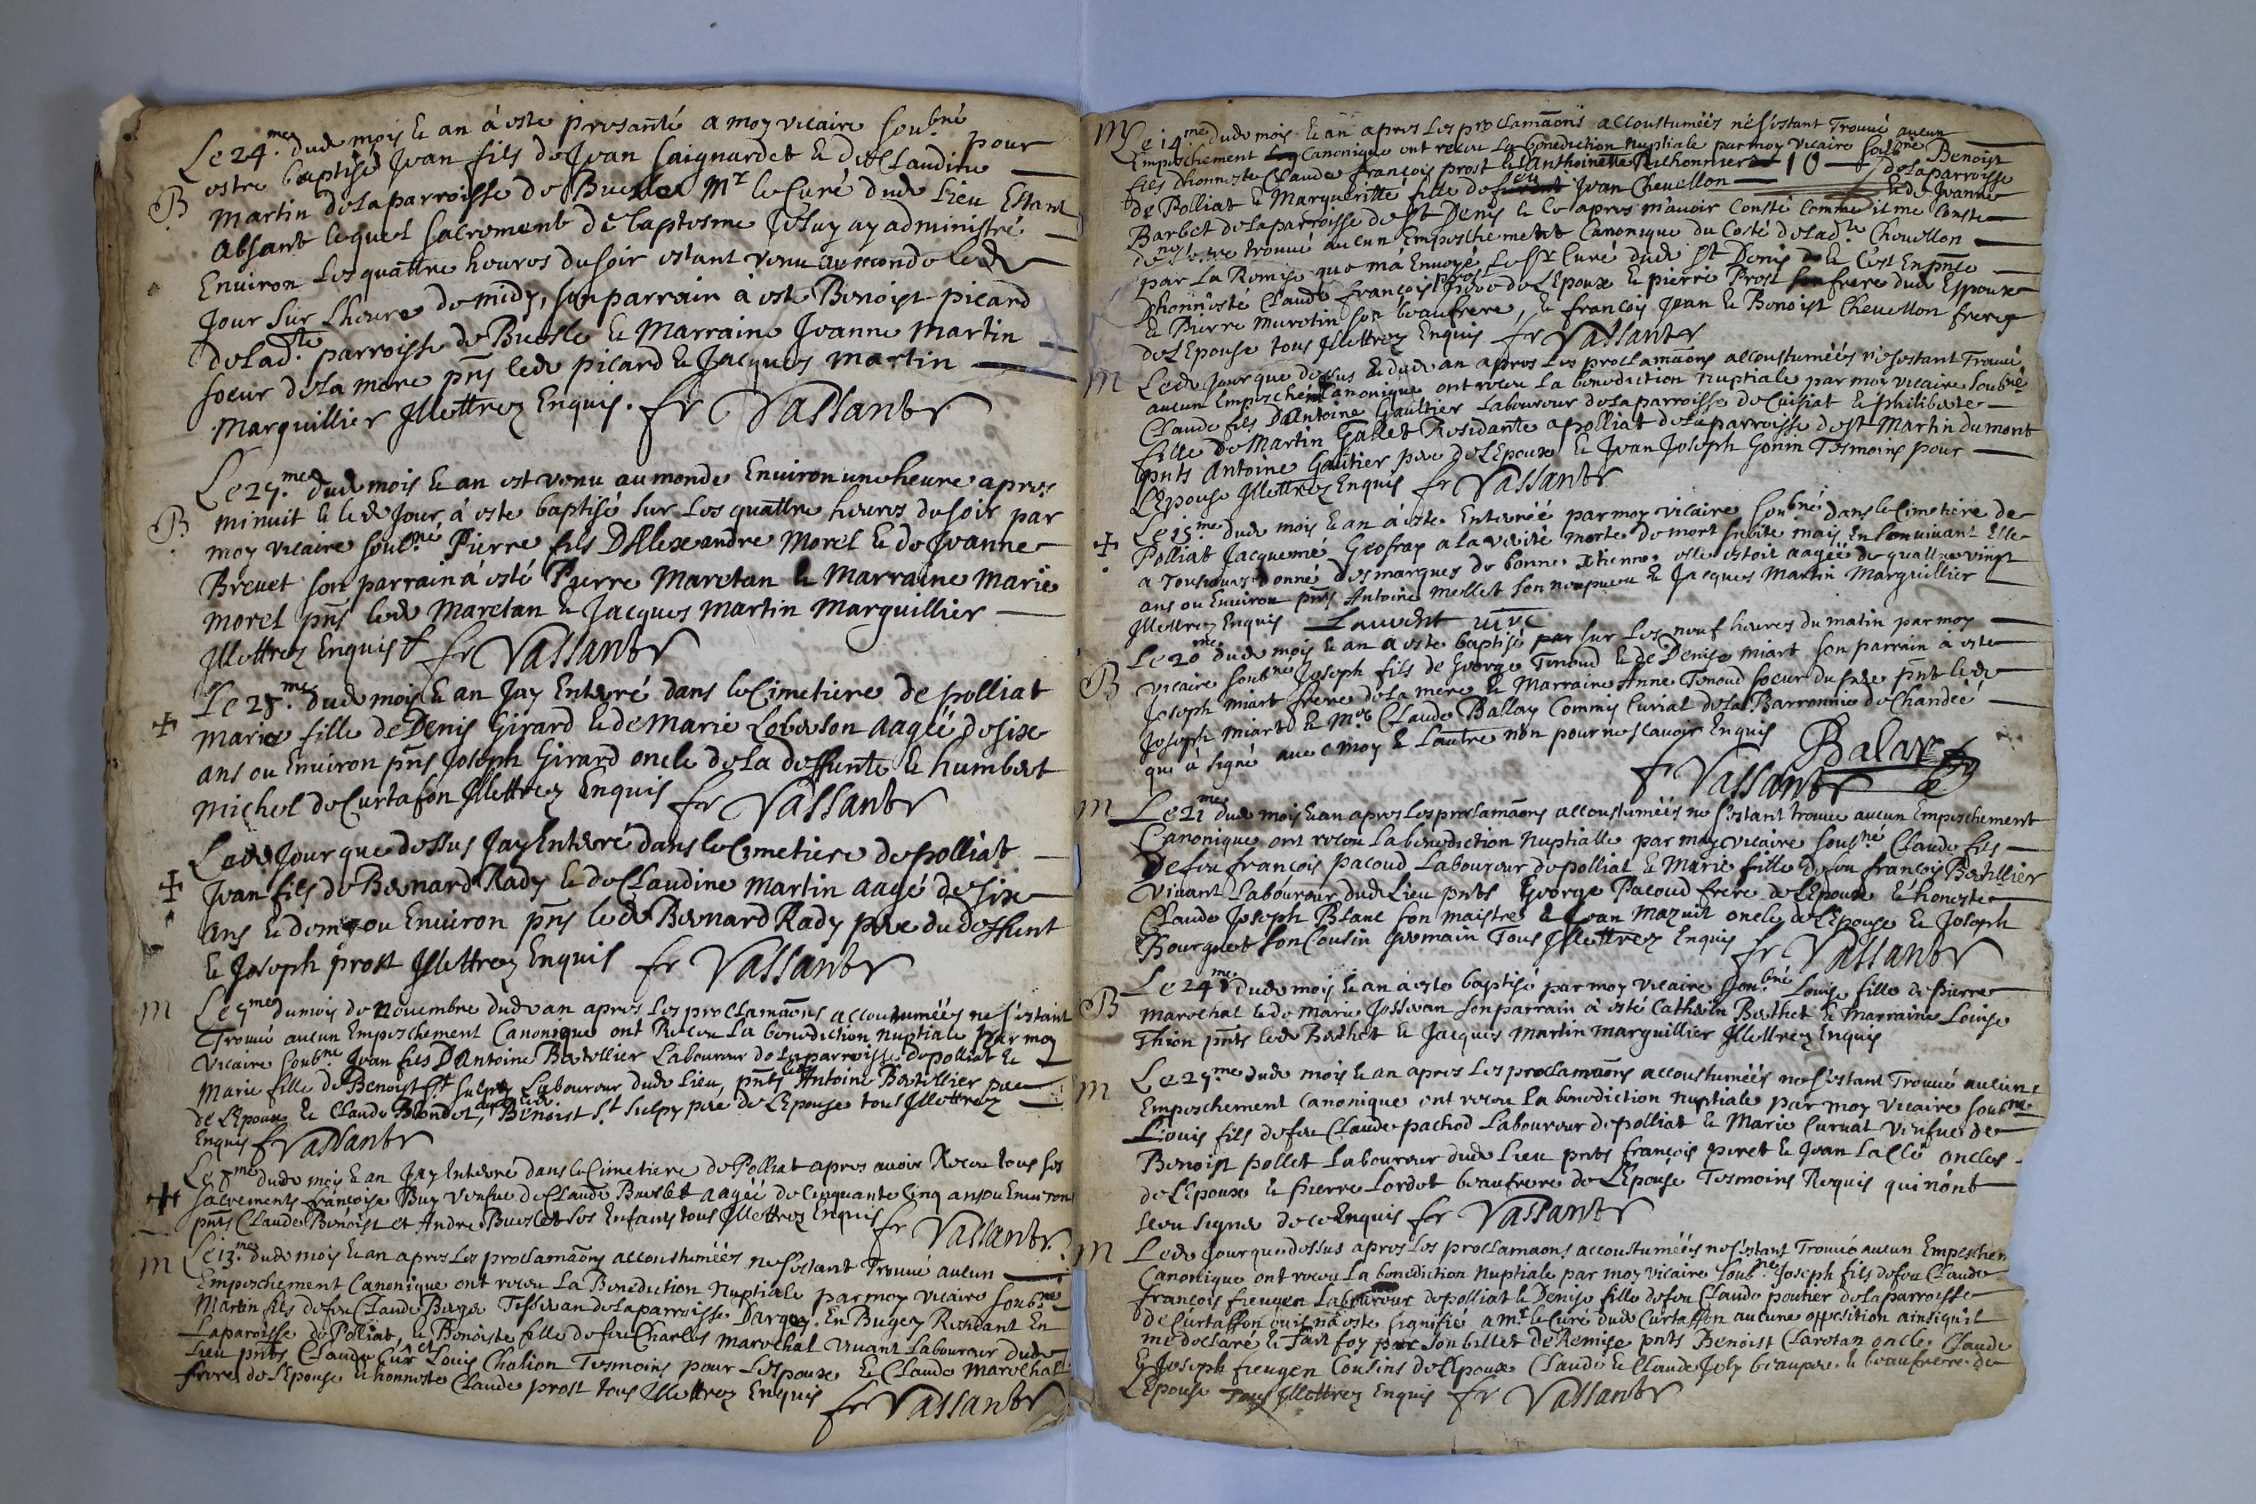 Le 24.me dud mois & an à esté presanté a moy vicaire soubné pour
B estre baptisé Jvan fils de Jvan saignardet & de Claudine
Martin de la parroisse de Buesle Mr le Curé dud Lieu Estant
Absant lequel sacrement de baptesme Je luy ay administré
Environ Les quattre heures du soir estant venu au monde led
Jour sur Lheure de midy, son parrain à esté Benoist picard
de lad.te parroisse de Buesle & Marraine Jvanne Martin
soeur de la mere pnts led picard & Jacques Martin
Marguillier Jllettrez Enquis. fr Vassantr
Le 25.me dud mois & an est venu au monde Environ une heure apres
B minuit & led Jour à esté baptisé sur Les quattre heures du soir par
moy vicaire soubné Pierre fils D'Alexandre Morel & de Jvanne
Brevet son parrain à esté Pierre Maretan & Marraine Marie
Morel pnts led Maretan & Jacques Martin Marguillier
Jllettrez Enquis fr Vassantr
Le 28.me dud mois & an Jay Enterré dans le Cimetiere de polliat
✝ Marie fille de Denis Girard & de Marie Loberson aagée de six
ans ou Environ pnts Joseph Girard oncle de la deffunte & humbert
Michel de Curtafon Jllettrez Enquis fr Vassantr
Led Jour que dessus Jay Enterré dans le Cimetiere de polliat
✝ Jvan fils de Bernard Rady & de Claudine Martin aagé de six
ans & demy ou Environ pnts led Bernard Rady pere du deffunt
& Joseph prost Jllettrez Enquis fr Vassantr
M Le 5me du mois de Novembre dud an apres Les proclamaons accoutumées ne s'estant
Trouué aucun Empeschement Canonique ont Receu La benediction Nuptiale par moy
vicaire soubné Jvan fils D'Antoine Bertellier Laboureur de la parroisse de polliat &
Marie fille de Benoist St Sulpy Laboureur dud Lieu, pnts led Antoine Bertellier pere
de L'epoux & Claude Blondet, Benoist St Sulpy pere de L'Epouse tous Jllettrez
Enquis fr Vassantr
Le 8me dud mois & an Jay Enterré dans le Cimetiere de Polliat apres auoir Receu tous ses
✝ sacrements françoise Buy veufue de Claude Buesle aagée de Cinquante Cinq ans ou Environ
pnts Claude Benoist et André Buesle ses Enfants tous Jllettrez Enquis fr Vassantr
M Le 13.me dud mois & an apres Les proclamaons accoustumées ne s'estant Trouué aucun
Empeschement Canonique ont receu La Benediction Nuptiale par moy vicaire soubné
Martin fils de feu Claude Berger Tisseran de la parroisse Dargey En Bugey Residant En
La paroisse de Polliat, & Benoiste fille de feu Charles Marechal vivant Laboureur dud
Lieu pnts Claude et Louis Chalion Tesmoins pour L'Espoux & Claude Marechal
frere de L'Epouse & honneste Claude prost tous Jllettrez Enquis
fr Vassantr
M Le 14.me dud mois & an apres Les proclamaons accoustumées ne s'estant Trouué aucun
Empeschement Canonique ont receu La benediction Nuptiale par moy vicaire soubné Benoist
fils d'honneste Claude François prost & Anthoinette de la parroisse
de Polliat & Margueritte fille de feu Jvan Chevellon & de Jvanne
Barbet de la parroisse de St Denis & ce apres m'auoir Consté comme il me Conste
de n'estre trouué aucun Empeschement Canonique du Costé de lad.te Chevellon
par La Remise que m'a Envoyé Le Sr Curé dud St Denis & c'est En pnce
d'honneste Claude françois prost pere de L'Epoux & pierre Prost frere dud Espoux
& Pierre Muretin son beaufrere, & françois Jvan & Benoist Chevellon freres
de L'Epouse tous Jllettrez Enquis fr Vassantr
M Led Jour que dessus & dud an apres Les proclamaons accoustumées ne s'estant Trouué
aucun Empeschem Canonique ont receu La benediction Nuptiale par moy vicaire soubné
Claude fils D'Antoine Gaultier Laboureur de la parroisse de Cuisiat & philiberte
fille de Martin Gallet Residante a polliat de la parroisse de St Martin du mont
pnts Antoine Gaultier pere de L'Epoux & Jvan Joseph Gonin Tesmoins pour
L'Epouse Jllettrez Enquis fr Vassantr
✝ Le 15.me dud mois & an à esté Enterrée par moy vicaire soubné dans le Cimetiere de
Polliat Jacquemé Geofray a la verité morte de mort subite mais En son vivant Elle
a Tousiours donné des marques de bonne Xtienne elle estoit aagée de quattre vingt
ans ou Environ pnts Antoine Mellet son nepueu & Jacques Martin Marguillier
Jllettrez Enquis
Le 20me dud mois & an à esté baptisé sur Les neuf heures du matin par moy
B vicaire soubné Joseph fils de George Tenoud & de Denise Miart son parrain à esté
Joseph Miart frere de la mere & Marraine Anne Tenoud soeur du pere pnts led
Joseph Miart & Mre Claude Ballay Commis Curial de la Barronnie de Chandeé
qui à signé auec moy & Lautre non pour ne scauoir Enquis Balay
fr Vassantr
M Le 21me dud mois & an apres Les proclamaons accoustumées ne s'estant trouue aucun Empeschement
Canonique ont receu La benediction Nuptialle par moy vicaire soubné Claude fils
de feu françois pacoud Laboureur de polliat & Marie fille de feu françois Bertillier
Vivant Laboureur dud Lieu pnts George Pacoud frere de L'Epoux & honeste
Claude Joseph Blanc son maistre & Jvan Mazuit oncle de L'Epouse & Joseph
Bourguet son Cousin germain Tous Jllettrez Enquis fr Vassantr
Le 24me dud mois & an à esté baptisé par moy vicaire soubné Louise fille de pierre
B Marechal & de Marie Josseran son parrain à esté Catherin Berthet & Marraine Louise
Thion pnts led Berthet & Jacques Martin Marguillier Jllettrez Enquis
M Le 25.me dud mois & an apres Les proclamaons accoustumées ne s'estant Trouué aucun
Empeschement Canonique ont receu La benediction Nuptiale par moy vicaire soubné
Louis fils de feu Claude pachod Laboureur de polliat & Marie Curnat veufue de
Benoist pollet Laboureur dud Lieu pnts françois peret & Jvan Lallé oncles
de L'Epoux & pierre Lordet beaufrere de L'Epouse Tesmoins Requis qui n'ont
sceu signer de ce Enquis fr Vassantr
M Led Jour que dessus apres Les proclamaons accoustumées ne s'estant Trouué aucun Empeschem
Canonique ont receu La benediction Nuptiale par moy vicaire soubné Joseph fils de feu Claude
françois fieugen Laboureur de polliat & Denise fille de feu Claude poutier de la parroisse
de Curtaffon ou il n'a esté signifié a Mr le Curé dud Curtaffon aucune opposition ainsi qu'il
me declaré & Fait foy par son billet de Remise pnts Benoist Claretan oncle Claude
& Joseph fieugen Cousins de L'Epoux Claude & Claude Joly beaupere & beaufrere de
L'Epouse Tous Jllettrez Enquis fr Vassantr